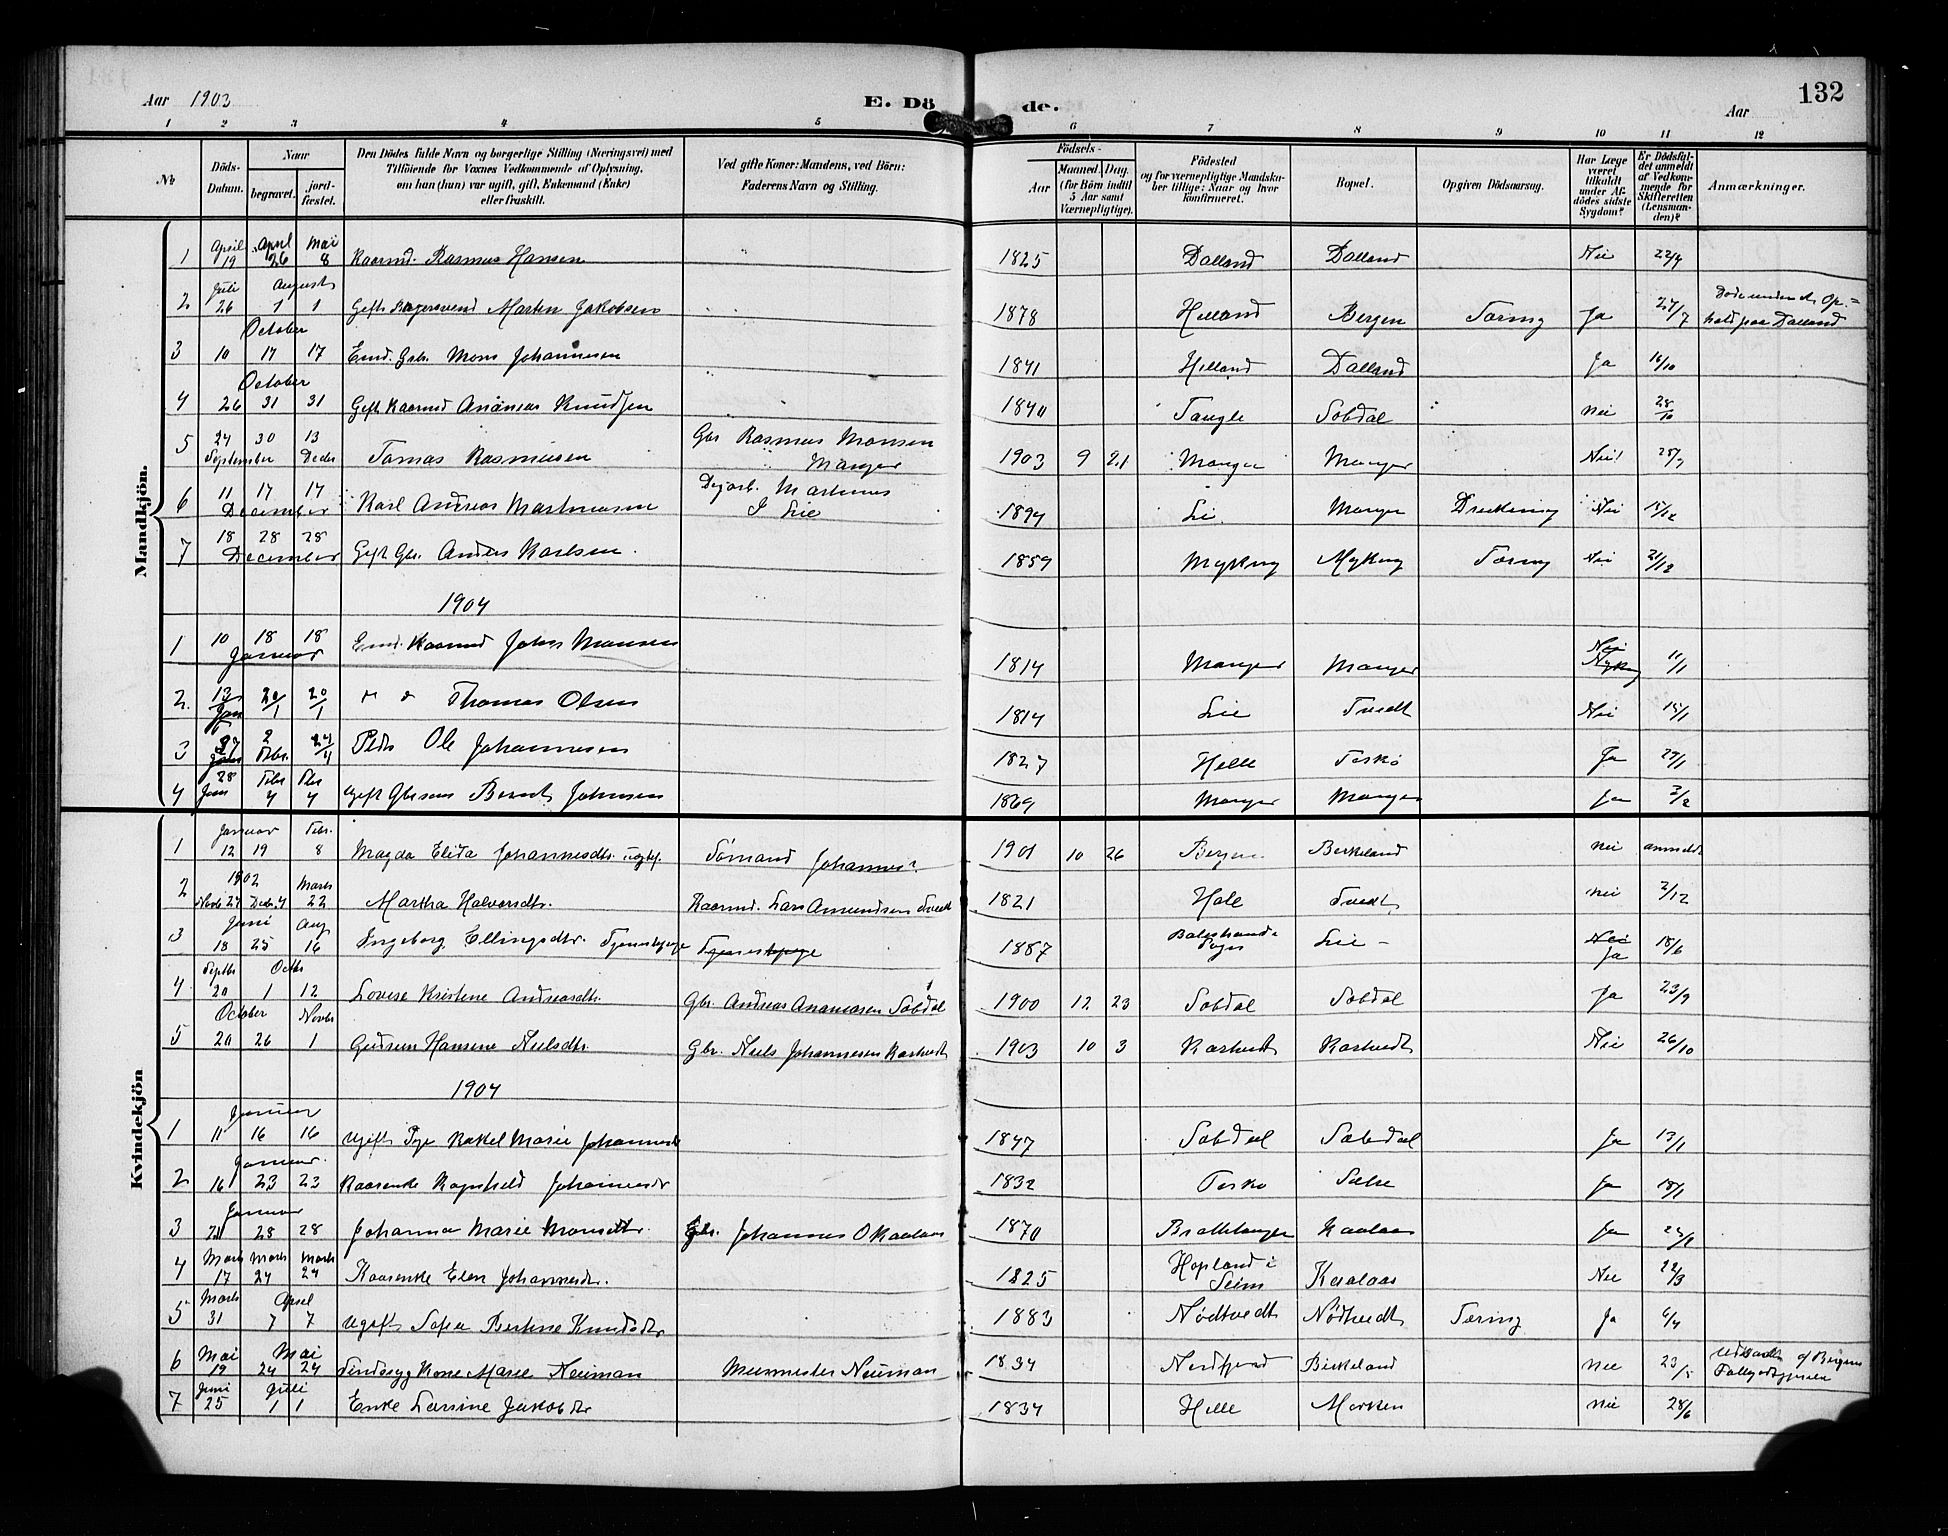 Aar 1903 E. Dö de. Aar 132
1 2 3 4 5 6 7 8 9 10 11 12
No Döds-Datum. Naar begravet. jord-fæstet. Den Dödes fulde Navn og borgerlige Stilling (Næringsvei) med Tilföiende for Voxnes Vedkommende af Oplysning, om han (hun) var ugift, gift, Enkemand (Enke) eller fraskilt. Ved gifte Koner: Mandens, ved Börn: Faderens Navn og Stilling. Födsels- Aar Maaned. Dag. (for Börn indtil 5 Aar samt Værnepligtige). Födested og for værnepligtige Mandskaber tillige: Naar og hvor konfirmeret. Bopæl. Opgiven Dödsaarsag. Har Læge været tilkaldt under Afdödes sidste Sygdom? Er Dödsfaldet anmeldt af Vedkommende for Skifteretten (Lensmanden)? Anmærkninger.
Mandkjön.
1 April 19 April 26 Mai 8 Kaarmd. Rasmus Hansen 1825 Dalland Dalland Nei 22/4
2 Juli 26 August 1 1 Gift Martin Jakobsen 1878 Helland Bergen Tæring Ja 27/7 Døde under et Op-
hold paa Dalland
3 October 10 17 17 Emd. Gbr. Mons Johannesen 1841 Helland Dalland Ja 16/10
4 October 26 31 31 Gift Kaarmd Ananias Knudsen 1840 Tangle Sobdal Nei 28/10
5 24 30 13 September Decbr Tomas Rasmusen Gbr Rasmus Monsen
Manger 1903 9 21 Manger Manger Nei
6 11 17 17 December Karl Andreas Martinusen Dagarb. Martinus
J Lie 1894 Lie Manger Drukning Nei 15/12
7 18 28 28 December Gift Gbr. Anders Karlsen. 1859 Myking Myking Tæring Nei 21/12
1904
1 10 18 18 Januar Emd. Kaarmd Johs Monsen 1814 Manger Manger Nei 11/1
2. 13/Jan 20/1 20/1 " " Thomas Olsen 1814 Lie Tvedt Nei 15/1
3 2 Febr. 24/4 Ole Johannesen 1827 Helle Toskø Ja 29/1
4 28 Jan Febr 4 Febr 4 Ugift Gbrsøn Bernt Johnsen 1869 Manger Manger Ja 2/2
Kvindekjön
1 Januar 12 19 Febr. 8 Magda Elida Johannesdtr. Sømand Johannes 1901 10 26 Bergen Birkeland Nei anmeldt
2 1902 Novbr 27 Decbr. 4 Marts 22 Martha Halvorsdtr. Kaarmd. Lars Amundsen Tvedt 1821 Hole Tvedt Nei 2/12
3 Juni 18 25 Aug 16 Ingeborg Ellingsdtr. Tjenestepige Tjenestepige 1887 Balestrands
Sogn Lie Nei
Ja 18/6
4 Septbr 20 Octbr 1 12 Lovise Kristine Andreasdtr. Gbr. Andreas Ananiasen Sobdal 1900 12 23 Sobdal Sobdal Ja 23/9
5 October 20 26 Novbr 1 Gudrun Hansine Nielsdtr. Gbr. Niels Johannesen Kartveit 1903 10 3 Kartveit Kartvedt Nei 26/10
1904
1 Januar 11 16 16 Ugift Pige Rakel Marie Johannesdtr 1847 Sobdal Sobdal Ja 13/1
2 Januar. 16 23 23 Kaarenke Ragnhild Johannesdtr 1832 Toskø Sæbø Ja 18/1
3 Januar 21 28 28 Johanna Marie Monsdtr. Gbr. Johannes O Kaalaas 1870 Kaalaas Ja
4 Marts 17 Marts 24 Marts 24 Kaarenke Elen Johannesdtr. 1825 Hopland i
Seim Kaalaas Nei 22/3
5 Marts 31 April 7 7 Ugift Sofia Bertine Knudsdtr 1883 Nødtvedt Nødtvedt Tæring Ja 6/4
6 Mai 19 Mai 24 24 Sindssyg Kone Marie Neuman Murmester Neuman 1834 Nordfjord Birkeland Nei 23/5 af Bergens
7 Juni 25 Juli 1 1 Enke Larsine Jakobsdtr 1834 Helle Marken Nei 28/6